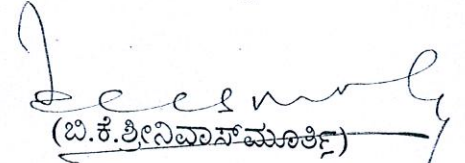 (ಬಿ.ಕೆ.ಶ್ರೀನಿವಾಸ್‌ಮೂರ್ತಿ)